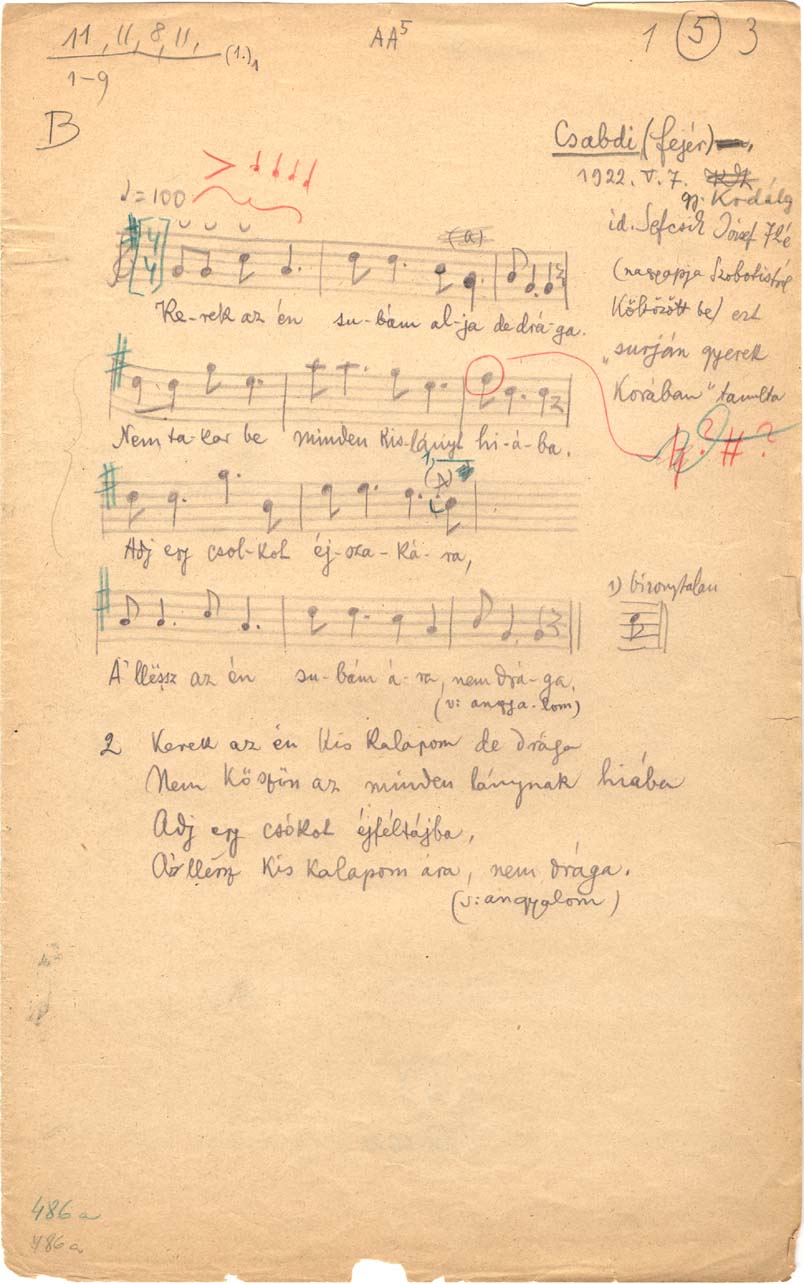 11, 11, 8, 11, (1.)1
1-9
AA5
1 5 3
B
Csabdi (fejér)
1922. V. 7.
gy. Kodály
id. Sefcsik József 72é
(nagyapja Szobotistról
költözött be) ezt
„surján gyerek
korában" tanulta
♩=100
4
4
(a)
Ke-rek az én su-bám al-ja de drá-ga.
Nem ta-kar be minden kis-lányt hi-á-ba.
♮? #?
1, (A)
Adj egy csol-kot éj-sza-ká-ra,
1) bizonytalan
A' llëssz az én su-bám á-ra, nem drá-ga.
(v: angya-lom)
2 Kerek az én kis kalapom de drága
Nem köszön az minden lánynak hiába
Adj egy csókot éjféltájba,
Az llësz kis kalapom ára, nem drága.
(v: angyalom)
486a
486a